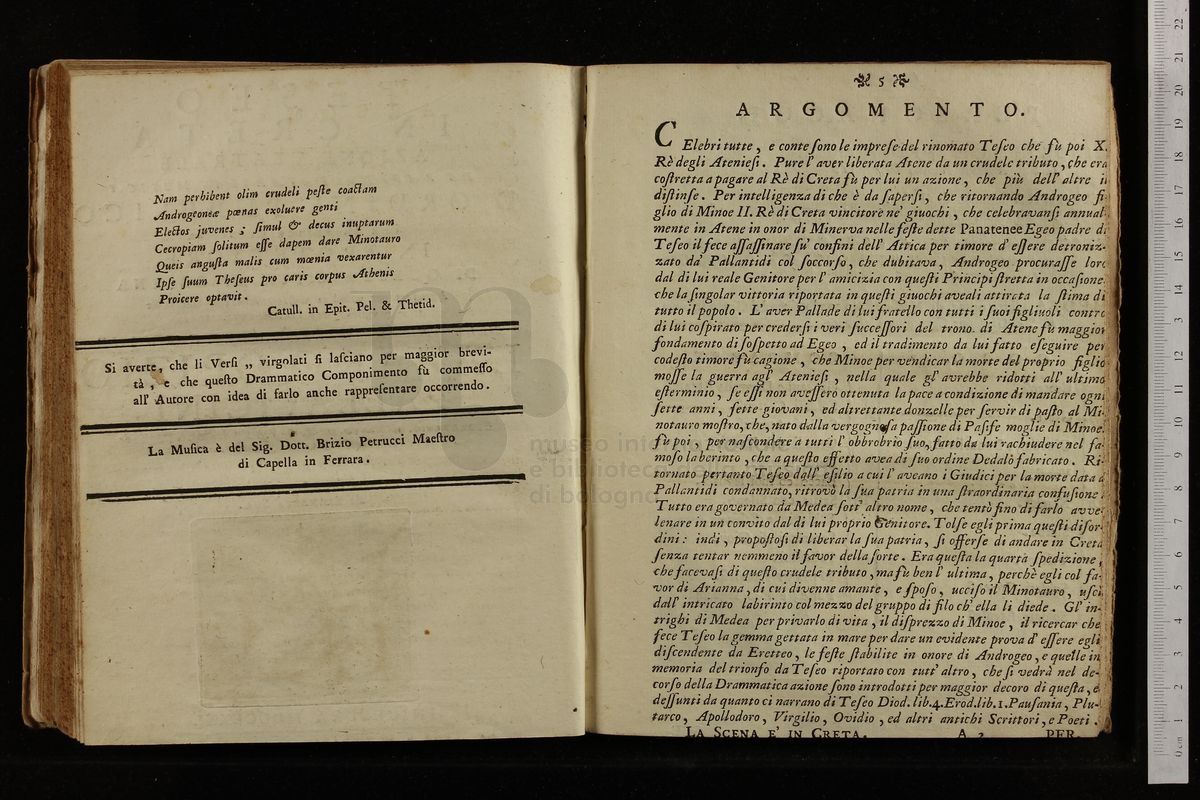 Nam perhibent olim crudeli peſte coactam
Androgeoneæ pœnas exoluere genti
Electos juvenes ; ſimul & decus inuptarum
Cecropiam ſolitum eſſe dapem dare Minotauro
Queis anguſta malis cum mœnia vexarentur
Ipſe ſuum Theſeus pro caris corpus Athenis
Proicere optavit .
Catull. in Epit. Pel. & Thetid.
Si averte, che li Verſi „ virgolati ſi laſciano per maggior brevi-
tà , e che queſto Drammatico Componimento fù commeſſo
all' Autore con idea di farlo anche rappreſentare occorrendo .
La Muſica è del Sig. Dott. Brizio Petrucci Maeſtro
di Capella in Ferrara .
5
ARGOMENTO.
CElebri tutte , e conte ſono le impreſe del rinomato Teſeo che fù poi X.
Rè degli Atenieſi . Pure l' aver liberata Atene da un crudele tributo , che era
coſtretta a pagare al Rè di Creta fù per lui un azione , che più dell' altre il
diſtinſe . Per intelligenza di che è da ſaperſi , che ritornando Androgeo fi-
glio di Minoe II. Rè di Creta vincitore ne' giuochi , che celebravanſi annual-
mente in Atene in onor di Minerva nelle feſte dette Panatenee Egeo padre di
Teſeo il fece aſſaſſinare ſu' confini dell' Attica per timore d' eſſere detroniz-
zato da' Pallantidi col ſoccorſo , che dubitava , Androgeo procuraſſe loro
dal di lui reale Genitore per l' amicizia con queſti Principi ſtretta in occaſione
che la ſingolar vittoria riportata in queſti giuochi aveali attirata la ſtima di
tutto il popolo . L' aver Pallade di lui fratello con tutti i ſuoi figliuoli contro
di lui coſpirato per crederſi i veri ſucceſſori del trono di Atene fù maggior
fondamento di ſoſpetto ad Egeo , ed il tradimento da lui fatto eſeguire per
codeſto timore fù cagione , che Minoe per vendicar la morte del proprio figlio
moſſe la guerra agl' Atenieſi , nella quale gl' avrebbe ridotti all' ultimo
eſterminio , ſe eſſi non aveſſero ottenuta la pace a condizione di mandare ogni
ſette anni , ſette giovani , ed altrettante donzelle per ſervir di paſto al Mi-
notauro moſtro, che, nato dalla vergognoſa paſſione di Paſife moglie di Minoe,
fù poi , per naſcondere a tutti l' obbrobrio ſuo, fatto da lui rachiudere nel fa-
moſo laberinto , che a queſto effetto avea di ſuo ordine Dedalò fabricato . Ri-
tornato pertanto Teſeo dall' eſilio a cui l' aveano i Giudici per la morte data a
Pallantidi condannato, ritrovò la ſua patria in una ſtraordinaria confuſione .
Tutto era governato da Medea ſott' altro nome , che tentò fino di farlo avve-
lenare in un convito dal di lui proprio Genitore. Tolſe egli prima queſti diſor-
dini : indi , propoſtoſi di liberar la ſua patria , ſi offerſe di andare in Creta
ſenza tentar nemmeno il favor della ſorte . Era queſta la quarta ſpedizione ,
che facevaſi di queſto crudele tributo , ma fù ben l' ultima , perchè egli col fa-
vor di Arianna , di cui divenne amante , e ſpoſo , ucciſo il Minotauro , uſcì
dall' intricato labirinto col mezzo del gruppo di filo ch' ella li diede . Gl' in-
trighi di Medea per privarlo di vita , il diſprezzo di Minoe , il ricercar che
fece Teſeo la gemma gettata in mare per dare un evidente prova d' eſſere egli
diſcendente da Eretteo , le feſte ſtabilite in onore di Androgeo , e quelle in
memoria del trionfo da Teſeo riportato con tutt' altro , che ſi vedrà nel de-
corſo della Drammatica azione ſono introdotti per maggior decoro di queſta , e
deſſunti da quanto ci narrano di Teſeo Diod. lib.4. Erod. lib. 1. Pauſania , Plu-
tarco , Apollodoro , Virgilio , Ovidio , ed altri antichi Scrittori , e Poeti .
LA SCENA E' IN CRETA. A 3 PER-